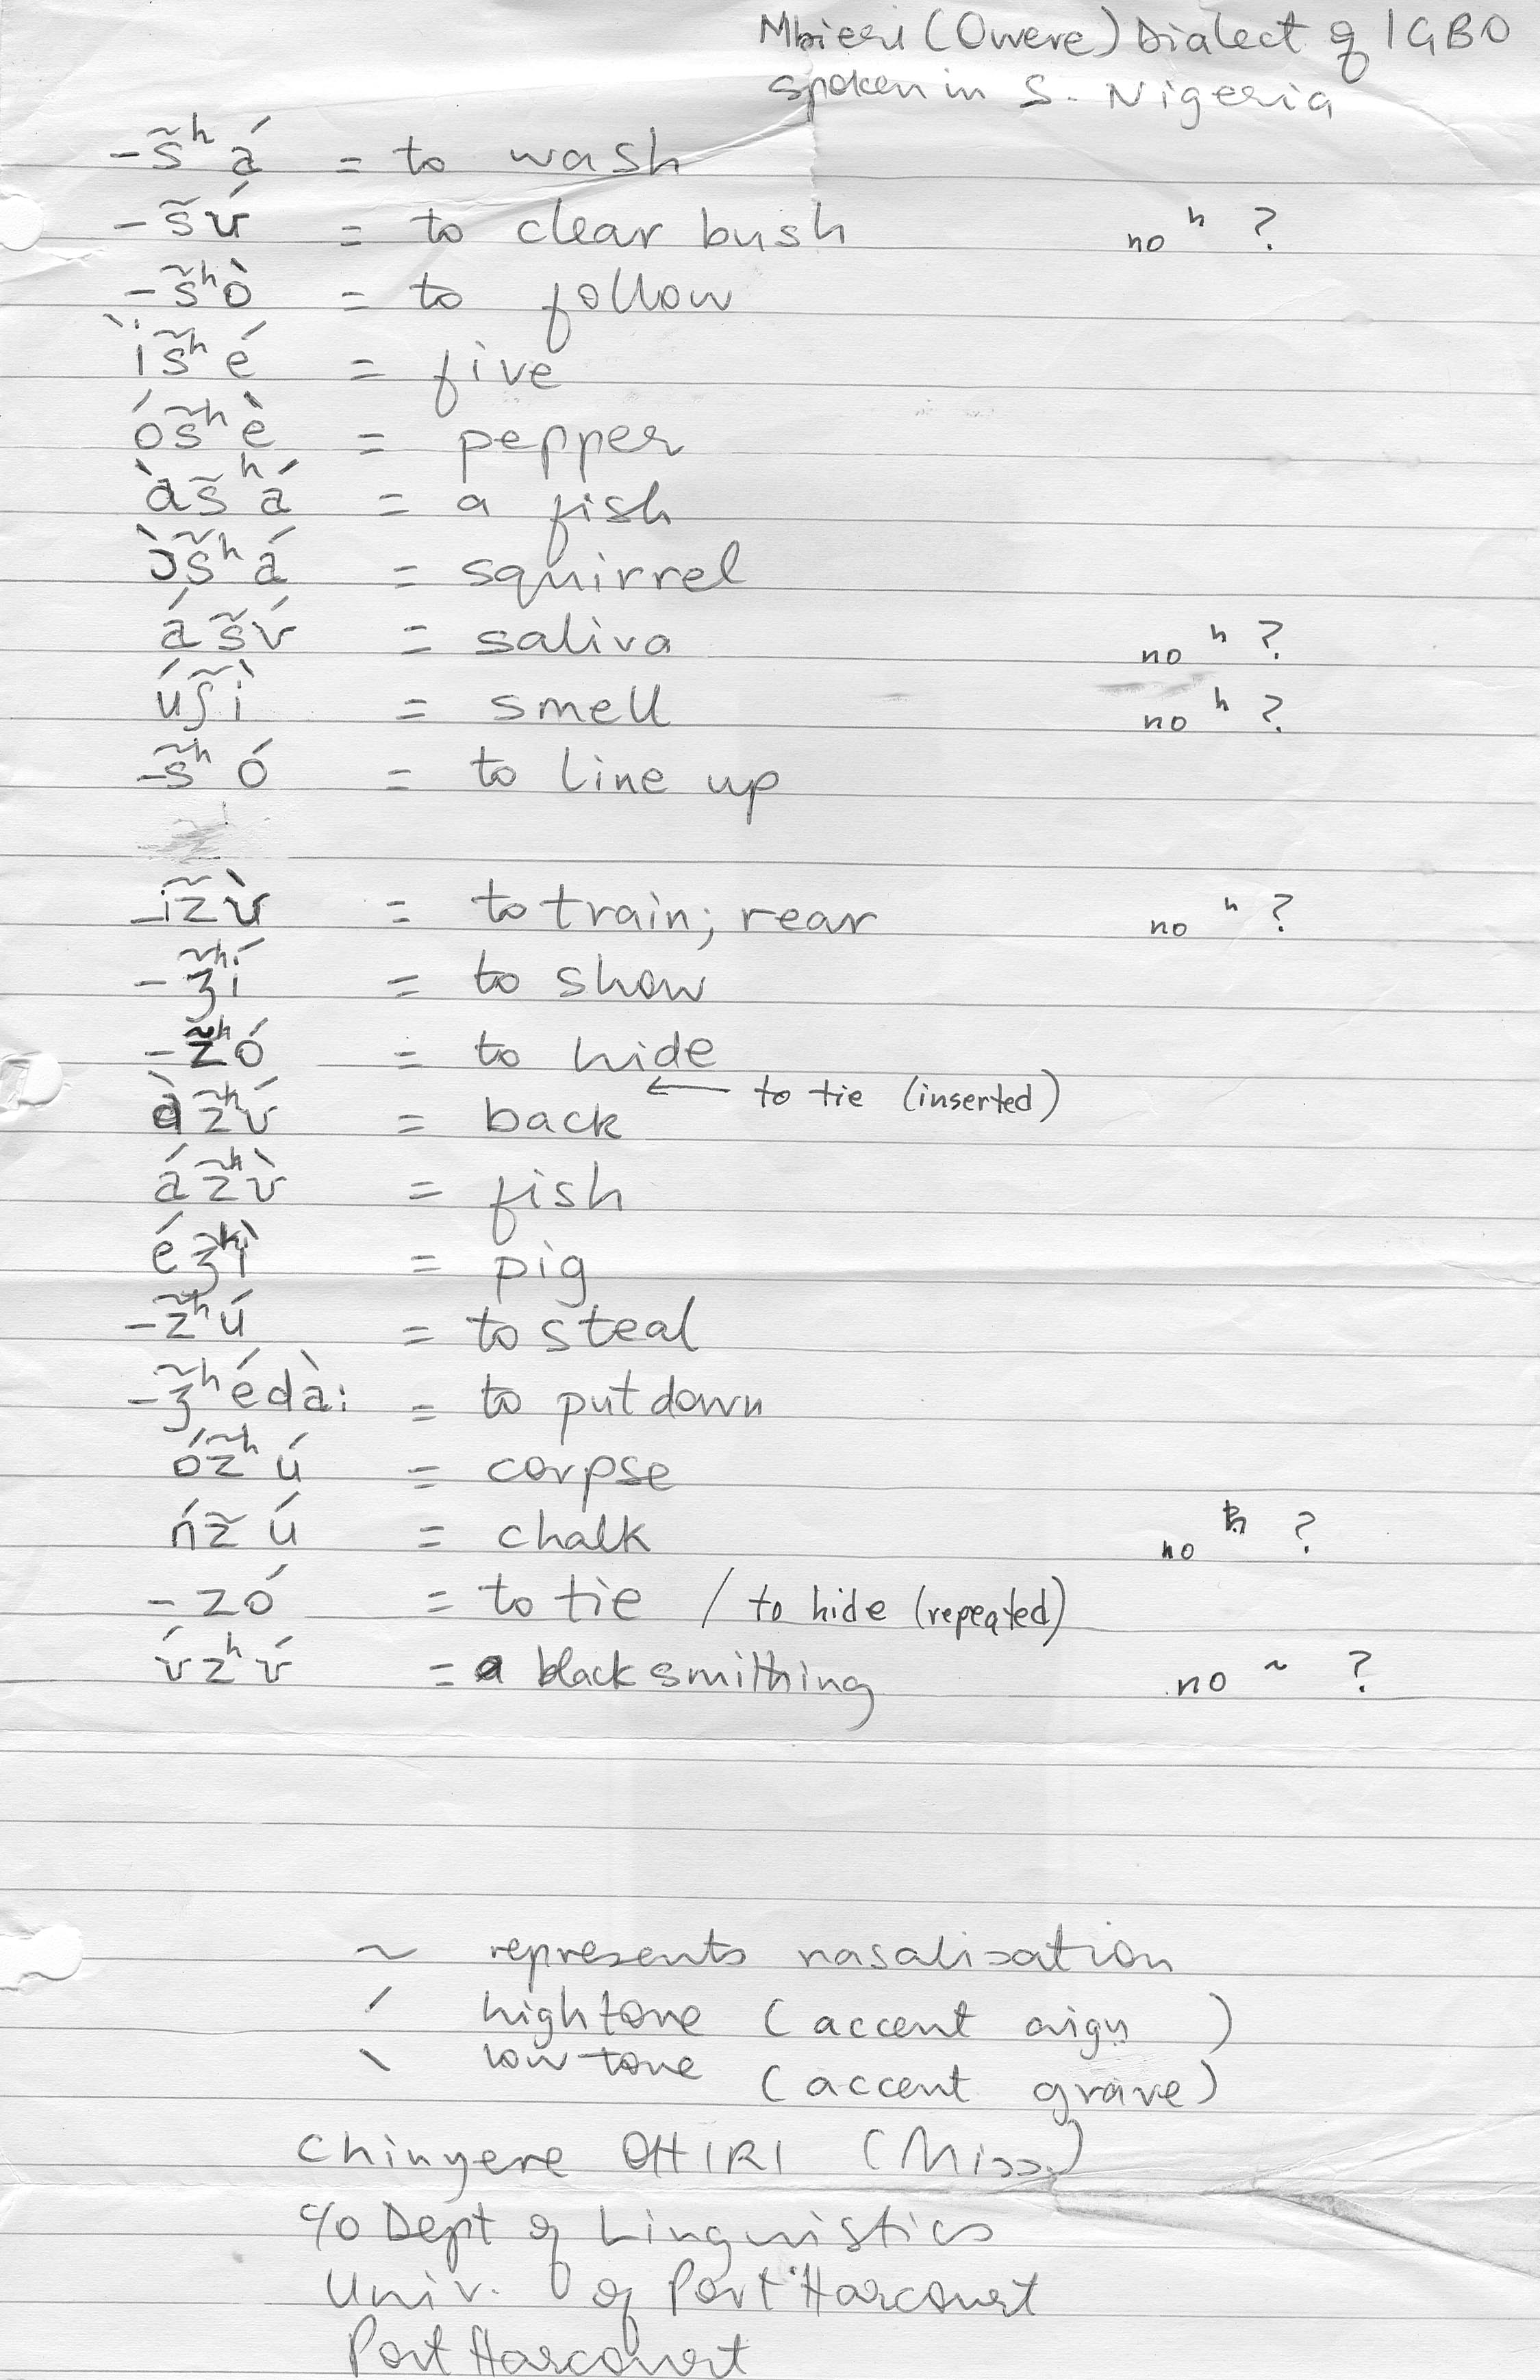 Mbieri (Owere) Dialect of IGBO
spoken in S. Nigeria
-s̃ʰá = to wash
-s̃ʋ́ = to clear bush no ʰ ?
-s̃ʰò = to follow
ìs̃ʰé = five
ós̃ʰè = pepper
às̃ʰá = a fish
ɔ̀s̃ʰá = squirrel
ás̃ʋ́ = saliva no ʰ ?
úʃ̃ì = smell no ʰ ?
-s̃ʰó = to line up
-iz̃ʋ̀ = to train; rear no ʰ ?
-ʒ̃ʰí = to show
-z̃ʰó = to hide
← to tie (inserted)
àz̃ʰʋ́ = back
áz̃ʰʋ̀ = fish
éʒ̃ʰì = pig
-z̃ʰú = to steal
-ʒ̃ʰédà: = to put down
óz̃ʰú = corpse
ńz̃ú = chalk no ʰ ?
-zó = to tie / to hide (repeated)
ʋ́zʰʋ́ = a blacksmithing no ~ ?
~ represents nasalisation
´ high tone (accent aigu )
` low tone (accent grave)
Chinyere OHIRI (Miss)
c/o Dept of Linguistics
Univ. of Port Harcourt
Port Harcourt